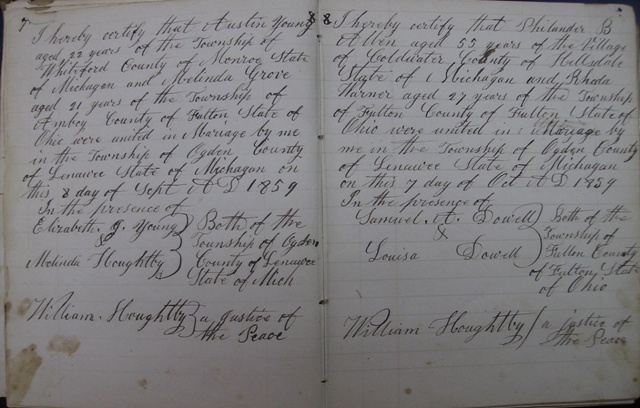 7
I hereby certify that Austin Young
aged 22 years of the Township of
Whiteford County of Monroe State
of Michagan and Melinda Grove
aged 21 years of the Township of
Amboy County of Fulton State of
Ohio were united in Mariage by me
in the Township of Ogden County
of Lenawee State of Michagan on
this 8 day of Sept A D 1859
In the presence of
Elizabeth J. Young
&
Molinda Houghtby
Both of the
Township of Ogden
County of Lenawee
State of Mich
William Houghtby
a Justice of
the Peace
8
I hereby certify that Philander B
Allen aged 55 years of the Village
of Coldwater County of Hillsdale
State of Michagan and Rhoda
Warner aged 27 years of the Township
of Fulton County of Fulton State of
Ohio were united in Mariage by
me in the Township of Ogden County
of Lenawee State of Michagan
on this 7 day of Oct A D 1859
In the presence of
Samuel A. Dowell
&
Louisa Dowell
Both of the
Township of
Fulton County
of Fulton State
of Ohio
William Houghtby
a justice of
the Peace